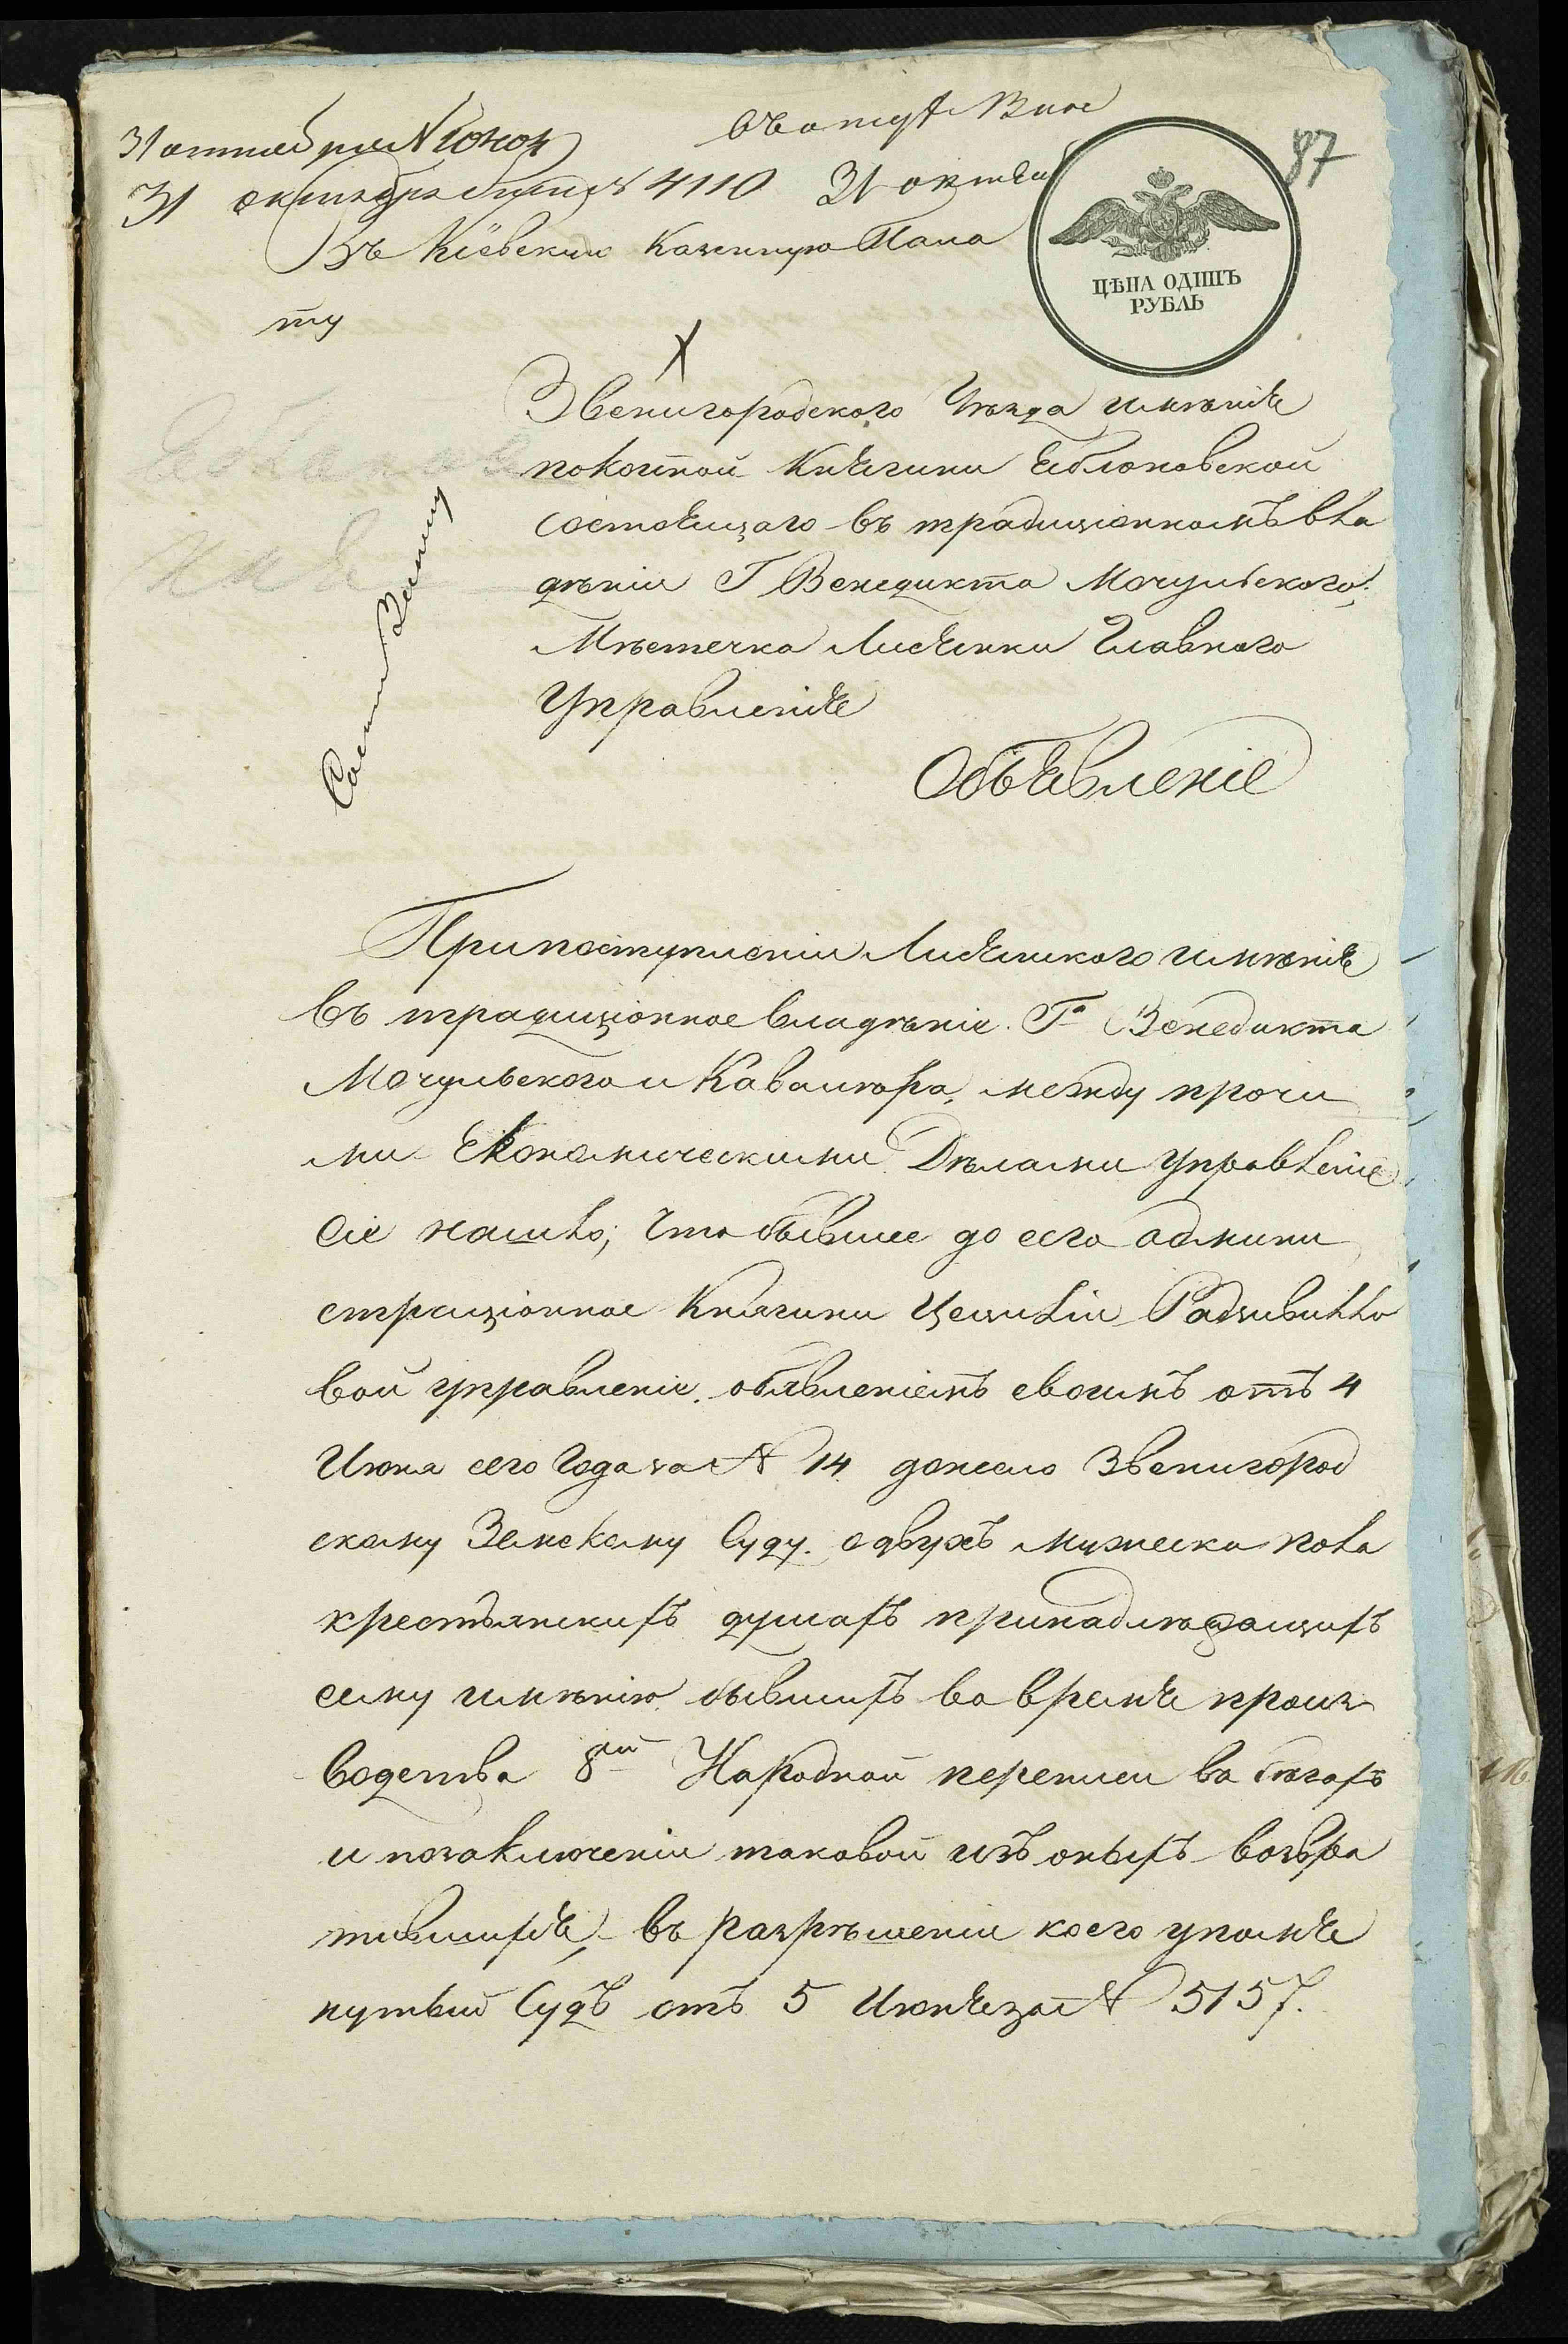 31 октября
31 октября 4110 31 октяб
87
Въ Кіевскую Казенную Пала
ту
ЦѢНА ОДИНЪ
РУБЛЬ
Звенигородского Уѣзда имѣнія
покойной Княгини Яблоновской
состоящаго въ традиціонномъ вла
дѣніи Г Венедикта Мочульского,
Мѣстечка Лисянки Главного
Управленія
Объявленіе
При поступленіи Лисянского имѣнія
въ традиціонное владѣніе Гна Венедикта
Мочульского и Кавалера, между прочи
ми Економическими Дѣлами Управленіе
сіе нашло; что бывшее до сего админи
страціонное Княгини Цециліи Радзивилло
вой управленіе, объявленіемъ своимъ отъ 4
Июня сего года за № 14 донесло Звенигород
скому Земскому Суду, о двухъ мужеска пола
крестьянскихъ душахъ принадлежащихъ
сему имѣнію бывшихъ во время произ
водства 8ой Народной переписи въ бѣгахъ
и по заключеніи таковой изъ оныхъ возвра
тившихся, въ разрѣшеніи коего упомя
нутый Судъ отъ 5 Июня за № 5157.